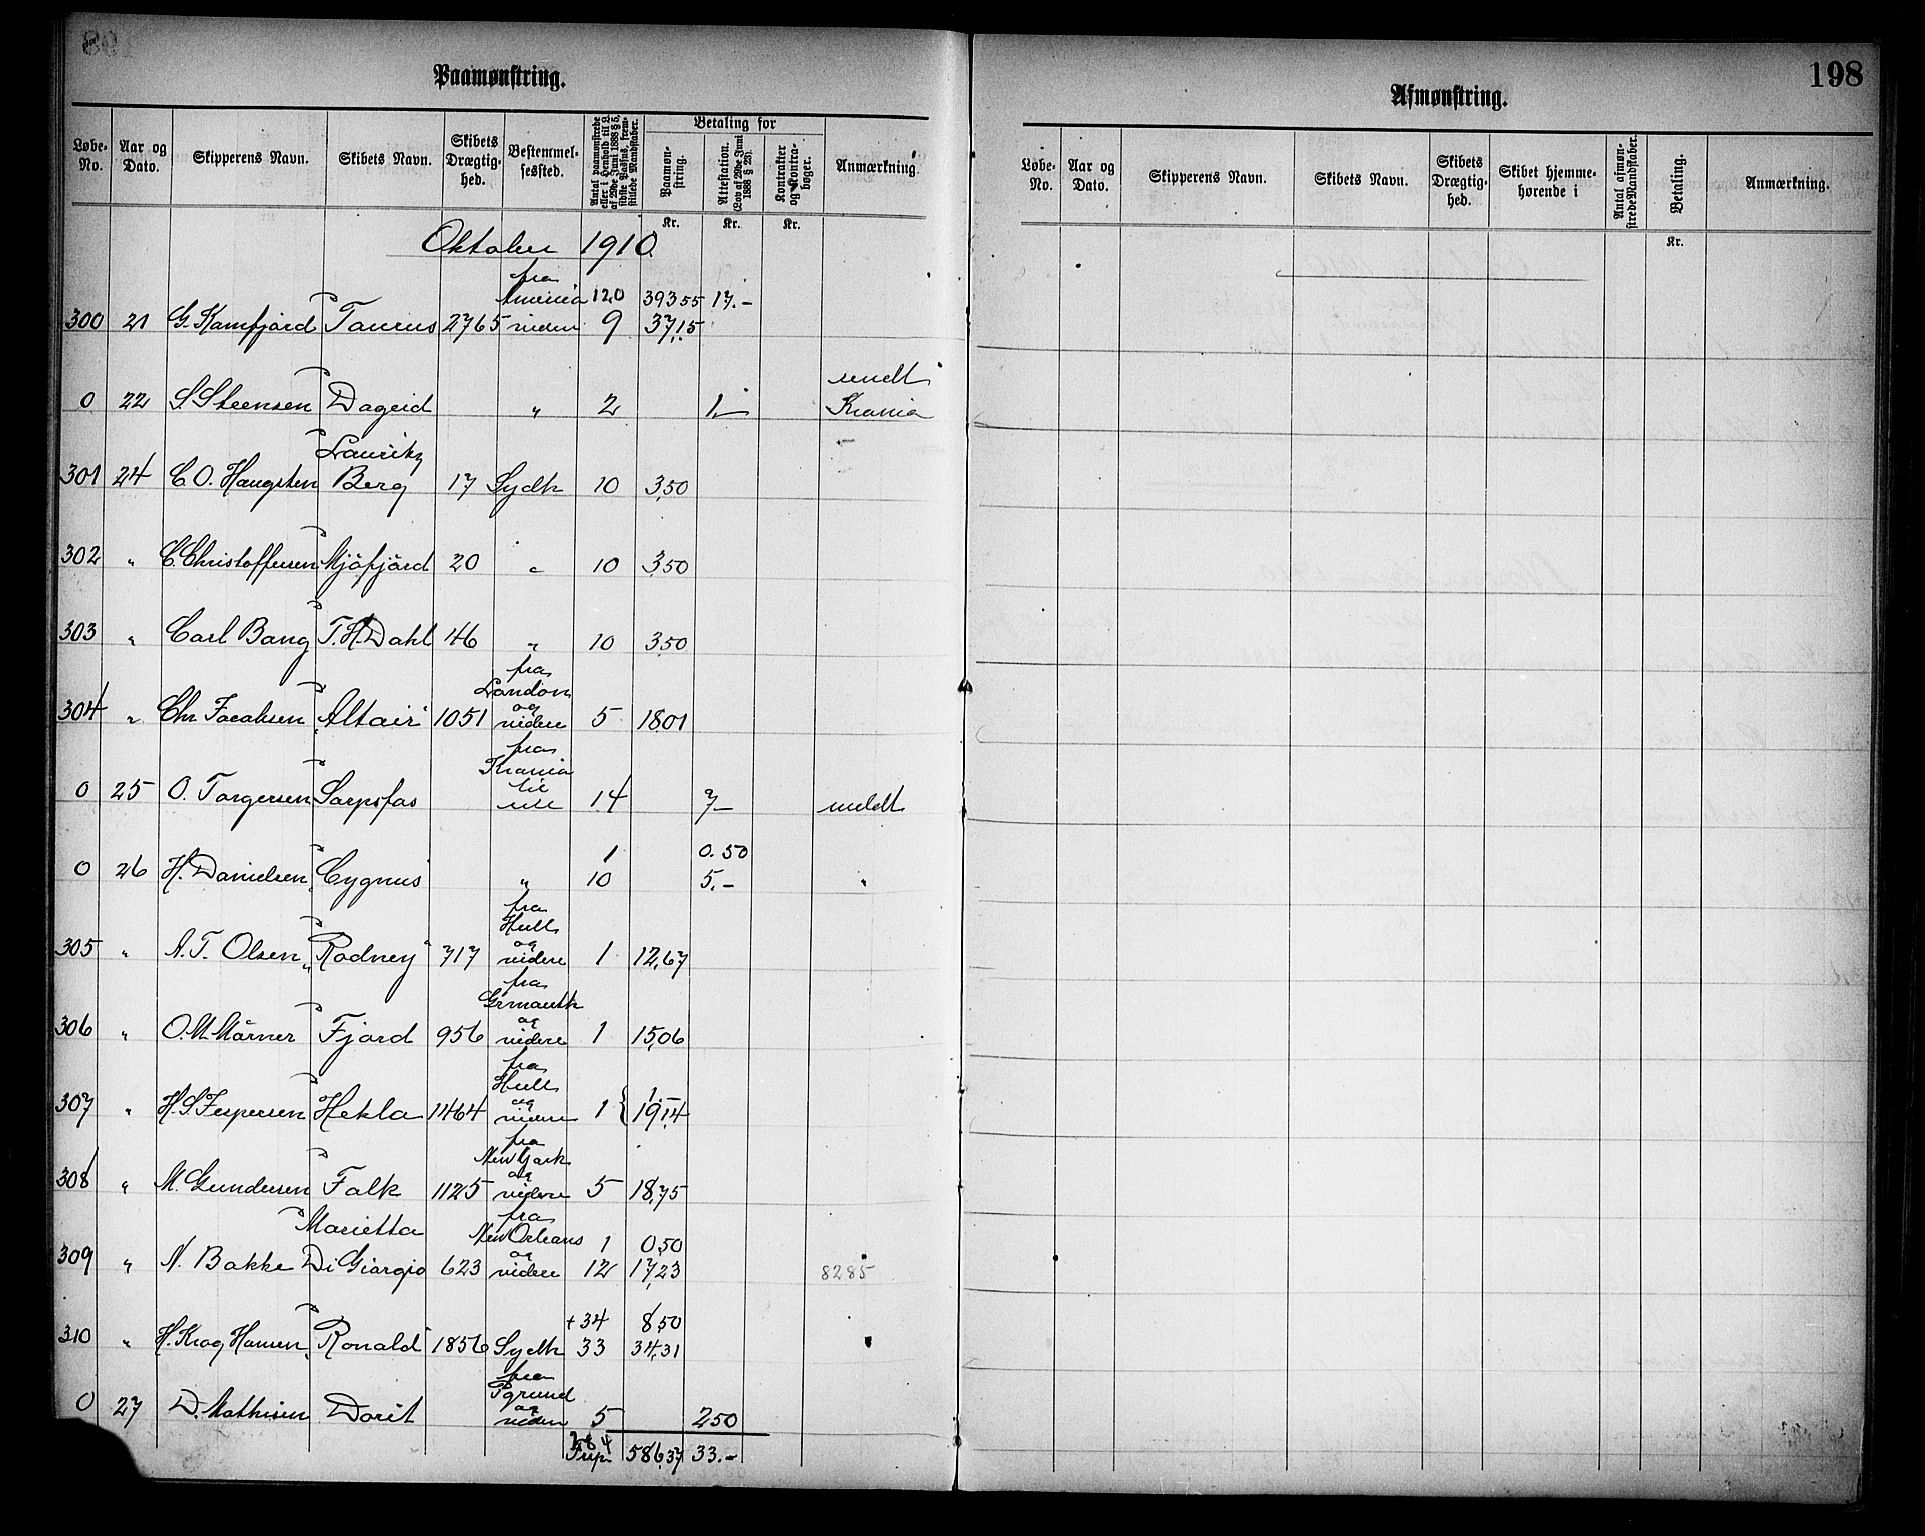 198
Paamønstring.
Løbe-No. Aar og Dato. Skipperens Navn. Skibets Navn. Skibets Drægtig-hed. Bestemmel-sessted. Antal paamønstrede eller i Henhold til L. af 29de Juni 1888 § 5, sidste Passus, frem-stillede Mandskaber. Betaling for Paamøn-string. Attestation. (Lov af 29de Juni 1888 § 28). Kontrakter og Kontra-bøger. Anmærkning.
Kr. Kr. Kr.
Oktober 1910.
fra
America 120 39355 17.-
300 21 G. Kamfjord Taurus 2765 videre 9 37,15
sendt
0 22 S. Steensen Dageid " 2 1,- Krania
Lauritz
301 24 C. O. Haugsten Berg 17 Sydh 10 3,50
302 " C. Christoffersen Mjöfjörd 20 " 10 3,50
303 " Carl Bang T. H. Dahl 146 " 10 3,50
fra
London
og
304 " Chr Jacobsen "Altair" 1051 videre 5 18,01
fra
Krania
til
0 25 O. Torgersen Sarpsfos 14 7- meldt
1 0.50
0 26 H. Danielsen "Cygnus" " 10 5.- "
fra
Hull
og
305 " A. T. Olsen "Rodney" 717 videre 1 12,67
fra
og
306 " O. M. Mörner Fjord 956 videre 1 15,06
fra
Hull
og
307 " H. S. Jespersen Hekla 1464 videre 1 { 19,14
fra
New York
og
308 " M. Gundersen Falk 1125 videre 5 18,75
fra
Marietta New Orleans 1 0,50
og
309 " N. Bakke Di Giorgio 623 videre 12 17,23 8285
+34 8,50
310 " H. Krog Hansen "Ronald" 1856 Sydh 33 34,31
fra
Pgrund
og
0 27 D. Mathisen Dorit videre 5 250
284
Trsp. 586,37 33.-
198
Afmønstring.
Løbe-No. Aar og Dato. Skipperens Navn. Skibets Navn. Skibets Drægtig-hed. Skibet hjemme-hørende i Antal afmøn-strede Mandskaber. Betaling. Anmærkning.
Kr.